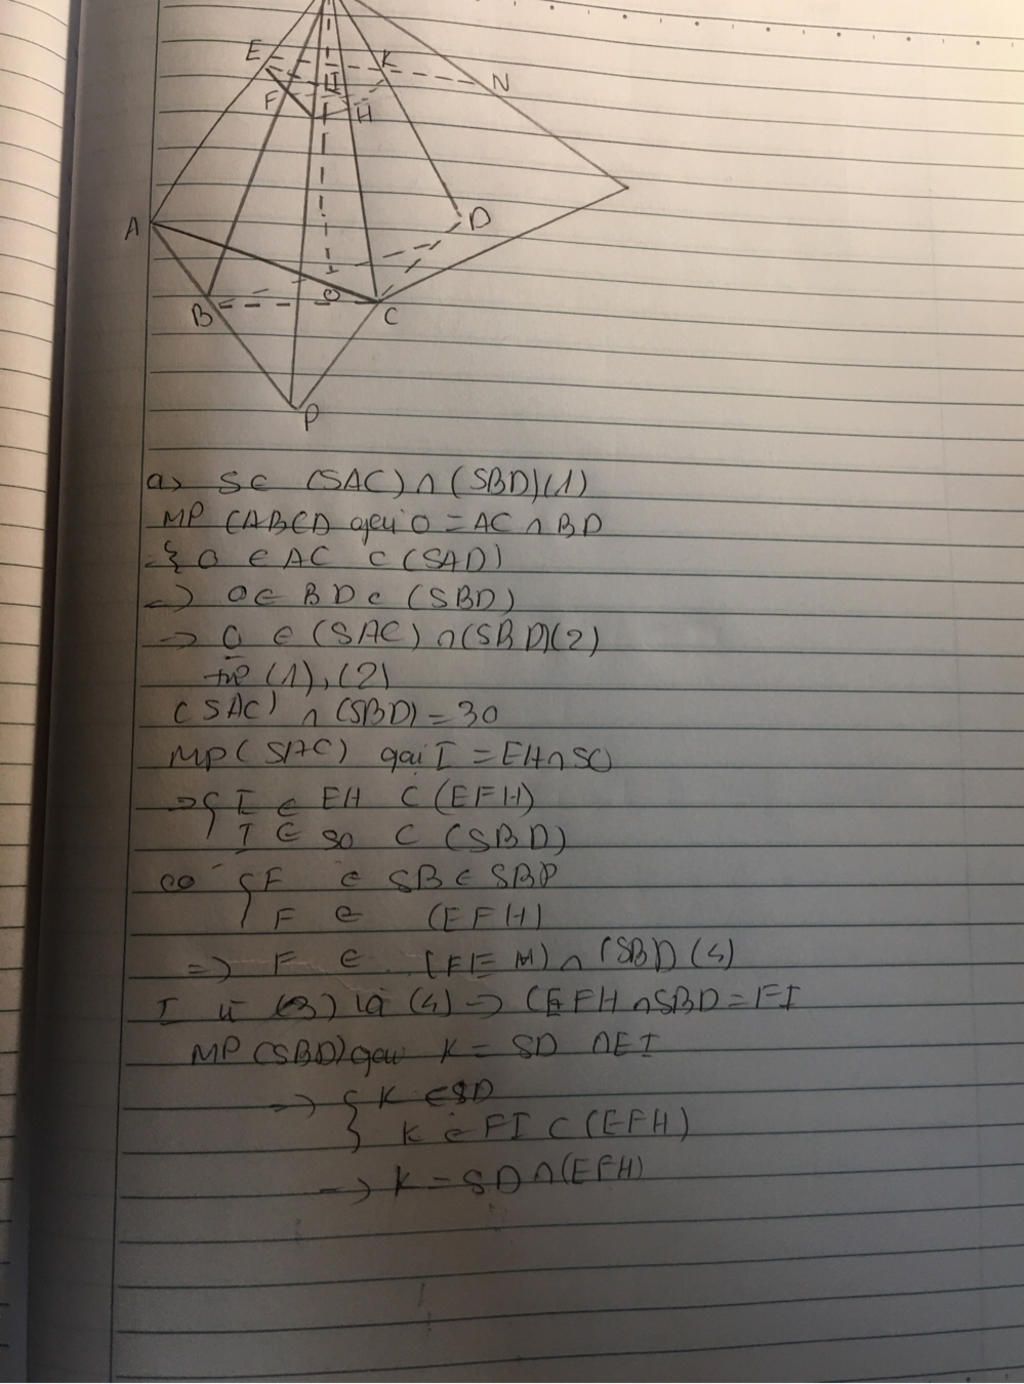 E
K
N
I
F
H
A
D
O
B
C
P
a) S ∈ (SAC) ∩ (SBD) (1)
MP (ABCD gọi O = AC ∩ BD
={ O ∈ AC ⊂ (SAD)
=> O ∈ BD ⊂ (SBD)
-> O ∈ (SAC) ∩ (SBD) (2)
từ (1), (2)
(SAC) ∩ (SBD) = 30
MP (SAC) gọi I = EH ∩ SO
=> { I ∈ EH ⊂ (EFH)
I ∈ SO ⊂ (SBD)
có { F ∈ SB ∈ SBP
F ∈ (EFH)
=> F ∈ (FEM) ∩ (SBD) (4)
I ừ (3) là (4) -> (EFH ∩ SBD = FI
MP (SBD) gọi K = SD ∩ EI
=> { K ∈ SD
K ∈ FI ⊂ (EFH)
-> K = SD ∩ (EFH)